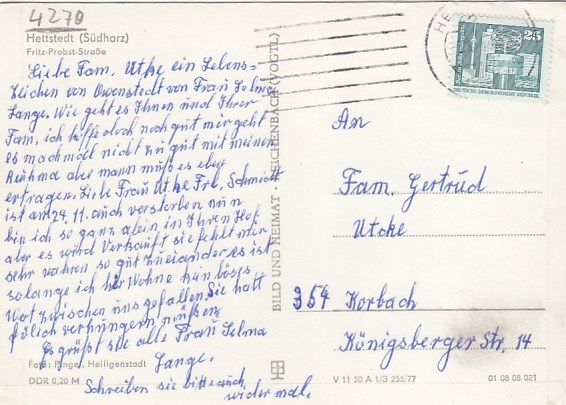 4270
Hettstedt (Südharz)
Fritz-Probst-Straße
Liebe Fam. Utke ein Lebens=
Zeichen von Owenstedt von Frau Selma
Lange. Wie geht es Ihnen und Ihrer
Fam, ich hoffe doch noch gut mir geht
es machmal nicht zu gut mit meinen
Reuhma aber mann muß es eben
ertragen. Liebe Frau Utke Frl. Schmidt
ist am 24.11. auch verstorben nun
bin ich so ganz alein in Ihren Hof
aber es wird Verkauft sie fehlt mir
sehr wahren so gut zueinander es ist
solange ich hier Wohne kein böses
Wot zwischen uns gefallen. Sie hatt
verhungern müßen
Es grüßt sie alle Frau Selma
Lange.
Schreiben sie bitte auch
wider mal.
Foto: Pingel, Heiligenstadt
DDR 0,20 M
BILD UND HEIMAT · REICHENBACH (VOGTL)
25
An
Fam. Gertrud
Utke
354 Korbach
Königsberger Str. 14
V 11 50 A 1/B 256/77
01 08 08 021